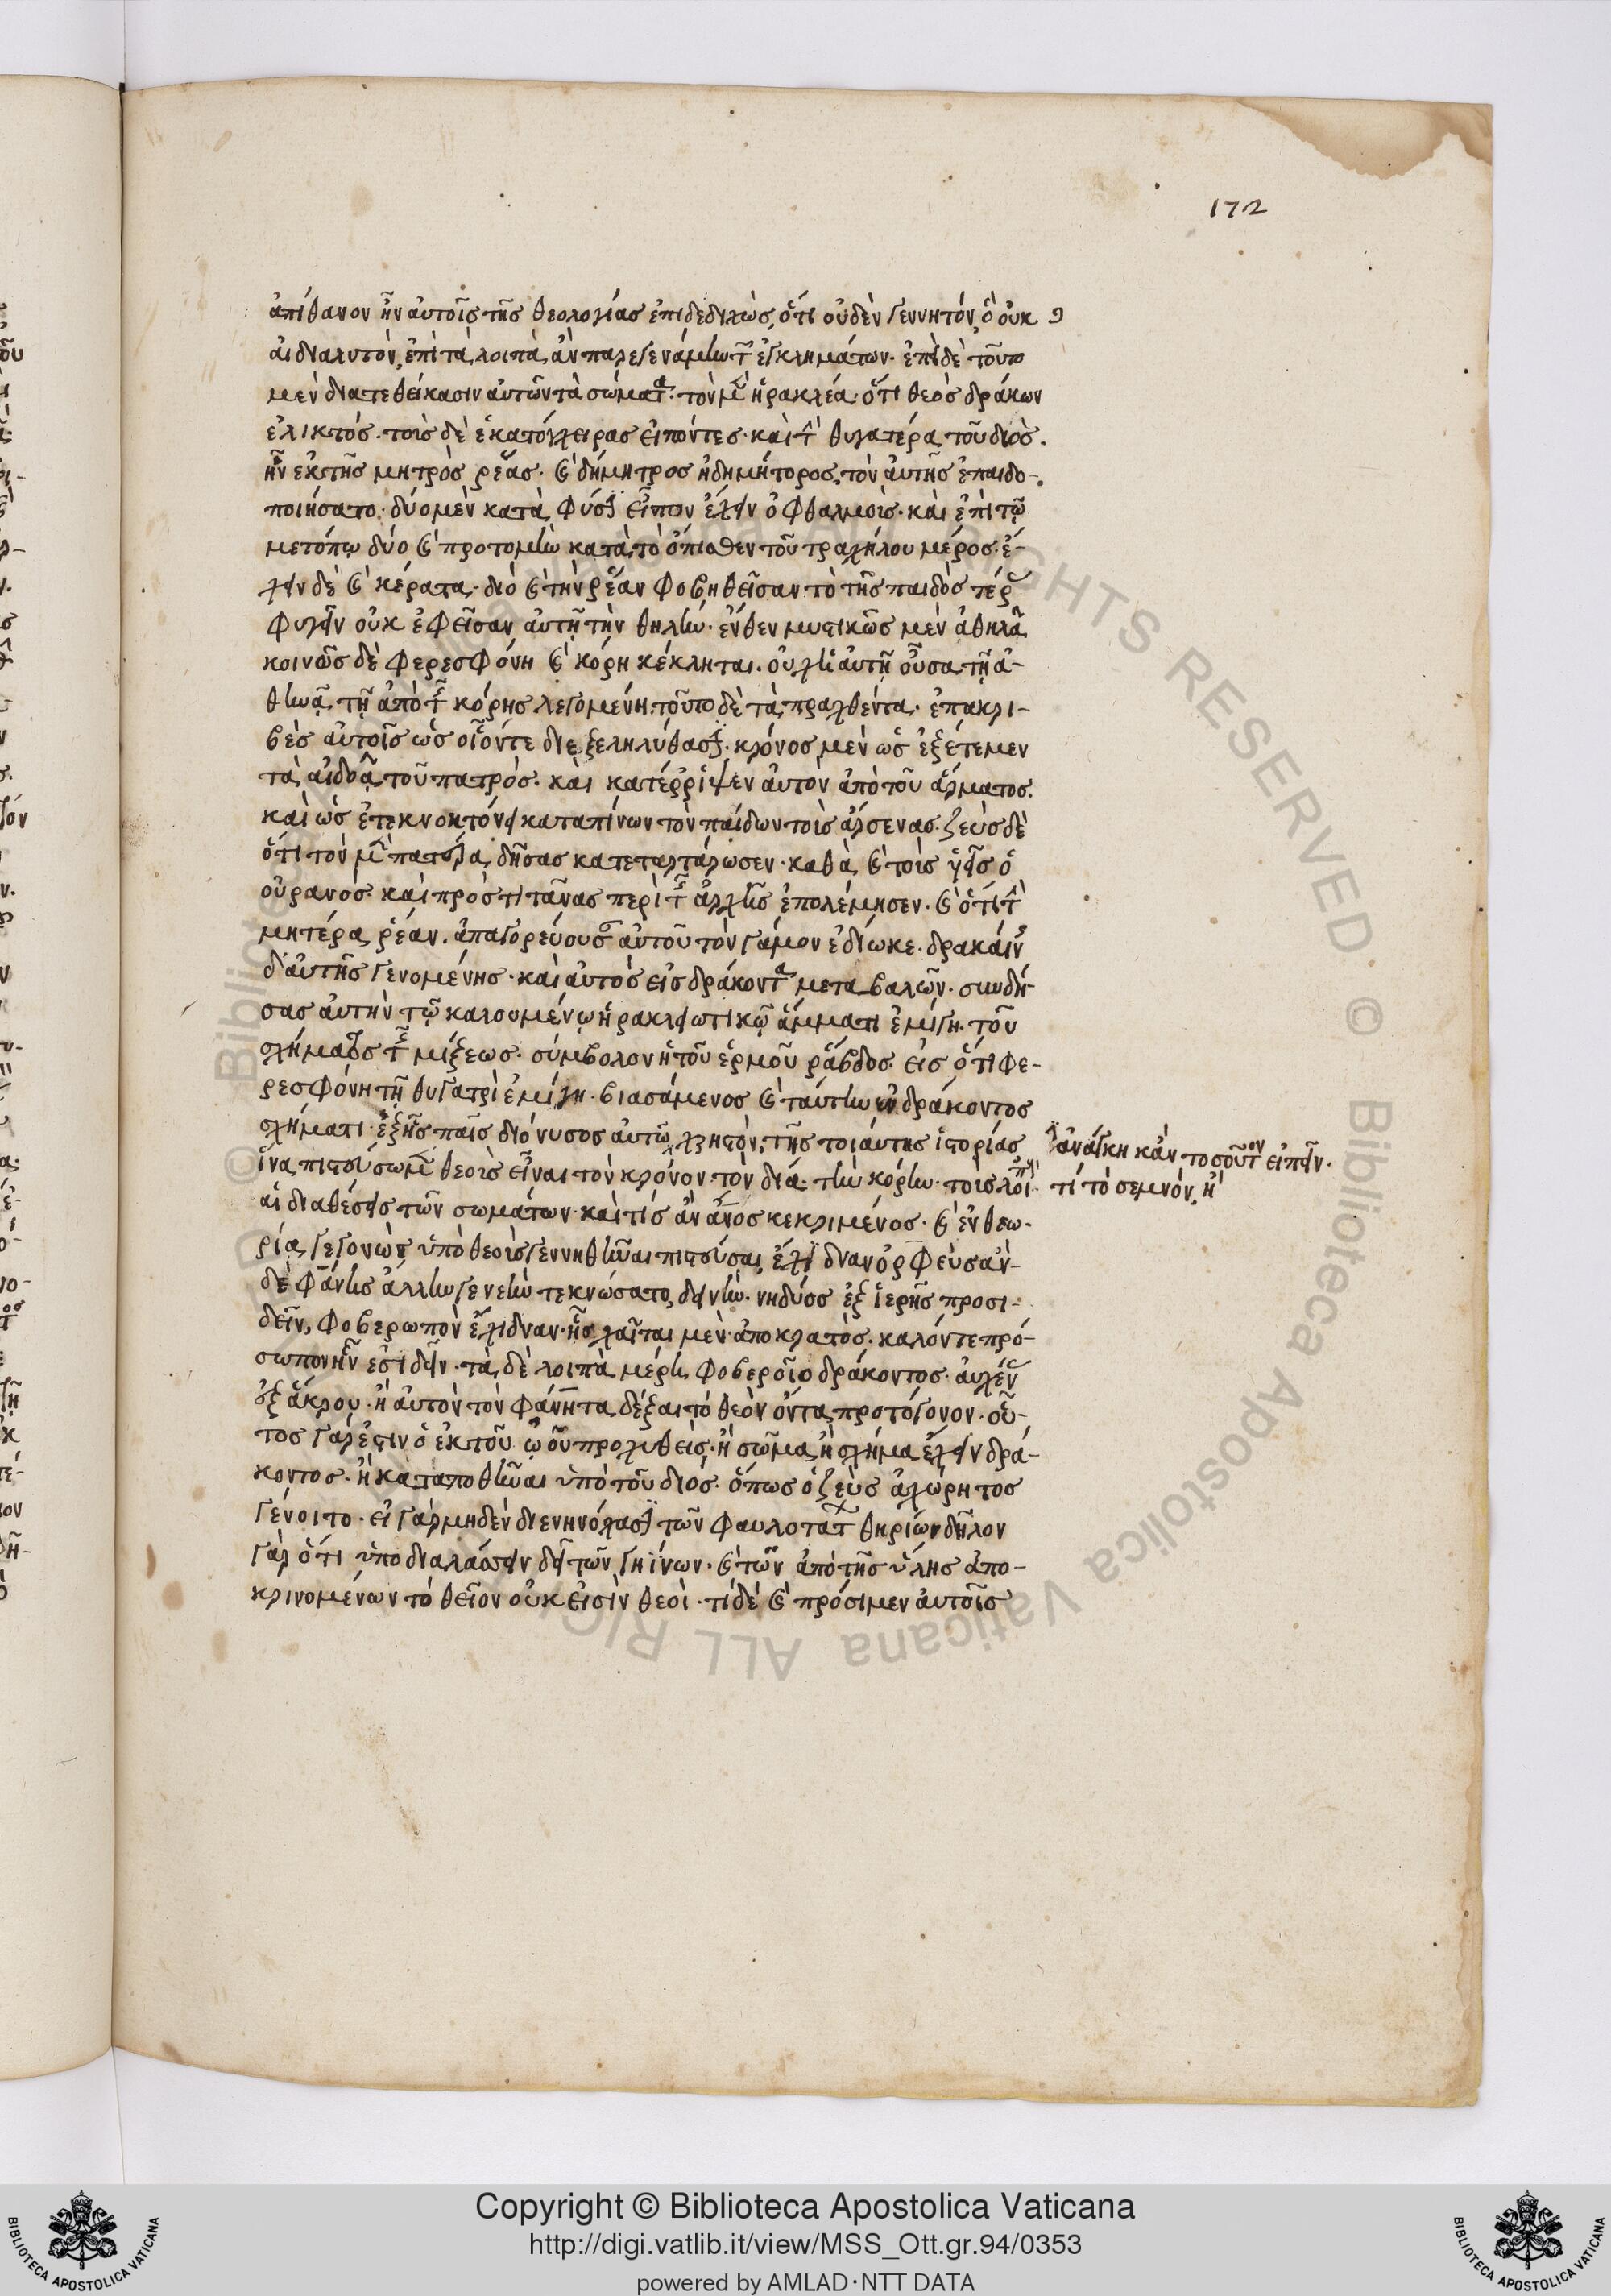 172
ἀπίθανον ἦν αὐτοῖς τῆς θεολογίας ἐπιδεδειχὼς, ὅτι οὐδὲν γεννητόν, ὃ οὐκ
αἱ διαλυτὸν, ἐπὶ τὰ λοιπὰ ἂν παρεγενάμην τῶν ἐγκλημάτων. ἐπεὶ δὲ τοῦτο
μὲν διατεθείκασιν αὐτῶν τὰ σώματα. τὸν μὲν ἡρακλέα, ὅτι θεὸς δράκων
ἑλικτός. τοὺς δὲ ἑκατόγχειρας εἰπόντες. καὶ τὴν θυγατέρα τοῦ διὸς.
ἣν ἐκ τῆς μητρὸς ῥέας. καὶ δήμητρος ἢ δημήτορος, τὸν αὐτῆς ἐπαιδο-
ποιήσατο. δύο μὲν κατὰ φύσιν εἶπον ἔχειν ὀφθαλμοὺς. καὶ ἐπὶ τῷ
μετώπῳ δύο καὶ προτομὴν κατὰ τὸ ὄπισθεν τοῦ τραχήλου μέρος. ἔ-
χειν δὲ καὶ κέρατα. διὸ καὶ τὴν ῥέαν φοβηθεῖσαν τὸ τῆς παιδὸς τέρας
φυγεῖν οὐκ ἐφεῖσαν αὐτῇ τὴν θηλήν. ἔνθεν μυστικῶς μὲν ἀθηλᾶ
κοινῶς δὲ φερεσφόνη καὶ κόρη κέκληται. οὐχ ἡ αὐτὴ οὖσα τῇ ἀ-
θηνᾷ τῇ ἀπὸ τῆς κόρης λεγομένη. τοῦτο δὲ τὰ πραχθέντα. ἐπ' ἀκρι-
βὲς αὐτοῖς ὡς οἷόν τε διεξεληλύθασιν. κρόνος μὲν ὡς ἐξέτεμεν
τὰ αἰδοῖα τοῦ πατρὸς. καὶ κατέρριψεν αὐτὸν ἀπὸ τοῦ ἅρματος.
καὶ ὡς ἐτεκνοκτόνει καταπίνων τὸν παίδων τοὺς ἄρσενας. ζεὺς δὲ
ὅτι τὸν μὲν πατέρα δήσας κατεταρτάρωσεν. καθὰ καὶ τοὺς υἱεῖς ὁ
οὐρανός. καὶ πρὸς τιτᾶνας περὶ τῆς ἀρχῆς ἐπολέμησεν. καὶ ὅτι τὴν
μητέρα ῥέαν. ἀπαγορεύουσαν αὐτοῦ τὸν γάμον ἐδίωκε. δρακαίνης
δ' αὐτῆς γενομένης. καὶ αὐτὸς εἰς δράκοντα μεταβαλῶν. συνδή-
σας αὐτὴν τῷ καλουμένῳ ἡρακλειωτικῷ ἅμματι ἐμίγη. τοῦ
σχήματος τῆς μίξεως. σύμβολον ἡ τοῦ ἑρμοῦ ῥάβδος. εἰς ὅτι φε-
ρεσφόνη τῇ θυγατρὶ ἐμίγη. βιασάμενος καὶ ταύτην ἐν δράκοντος
σχήματι. ἐξ ἧς παῖς διόνυσος αὐτῷ χρηστόν, τῆς τοιαύτης ἱστορίας
ἀνάγκη κἂν τοσοῦτον εἰπεῖν.
τί τὸ σεμνὸν, ἢ
ἵνα πιστεύσωμεν θεοὺς εἶναι τὸν κρόνον. τὸν δία. τὴν κόρην. τοὺς λοιποὺς
αἱ διαθέσεις τῶν σωμάτων. καὶ τίς ἂν ἄνος κεκριμένος. καὶ ἐν θεω-
ρίᾳ γεγονὼς ὑπὸ θεοὺς γεννηθῆναι πιστεύσαι ἔχιδναν ὀρφεὺς ἂν
δὲ φάνης ἄλλην γενεὴν τεκνώσατο δεινὴν. νηδύος ἐξ ἱερῆς προσι-
δεῖν, φοβερωπὸν ἔχιδναν. ἧς χαῖται μὲν. ἀπὸ κρατὸς. καλόν τε πρό-
σωπον ἦν ἐσιδεῖν. τὰ δὲ λοιπὰ μέρη φοβεροῖο δράκοντος. αὐχένος
ἐξ ἄκρου. ἢ αὐτὸν τὸν φάνητα δέξαιτο θεὸν ὄντα πρωτόγονον. οὗ-
τος γάρ ἐστιν ὁ ἐκ τοῦ ὠοῦ προχυθεὶς. ἢ σῶμα ἢ σχῆμα ἔχειν δρά-
κοντος. ἢ καταποθῆναι ὑπὸ τοῦ διός. ὅπως ὁ ζεὺς ἀχώρητος
γένοιτο. εἰ γὰρ μηδὲν διενηνόχασιν τῶν φαυλοτάτων θηρίων δῆλον
γὰρ ὅτι ὑποδιαλάσσειν δεῖ τῶν γηίνων. καὶ τῶν ἀπὸ τῆς ὕλης ἀπο-
κρινομένων τὸ θεῖον οὐκ εἰσὶν θεοὶ. τί δὲ καὶ πρόσιμεν αὐτοῖς
Copyright © Biblioteca Apostolica Vaticana
http://digi.vatlib.it/view/MSS_Ott.gr.94/0353
powered by AMLAD·NTT DATA